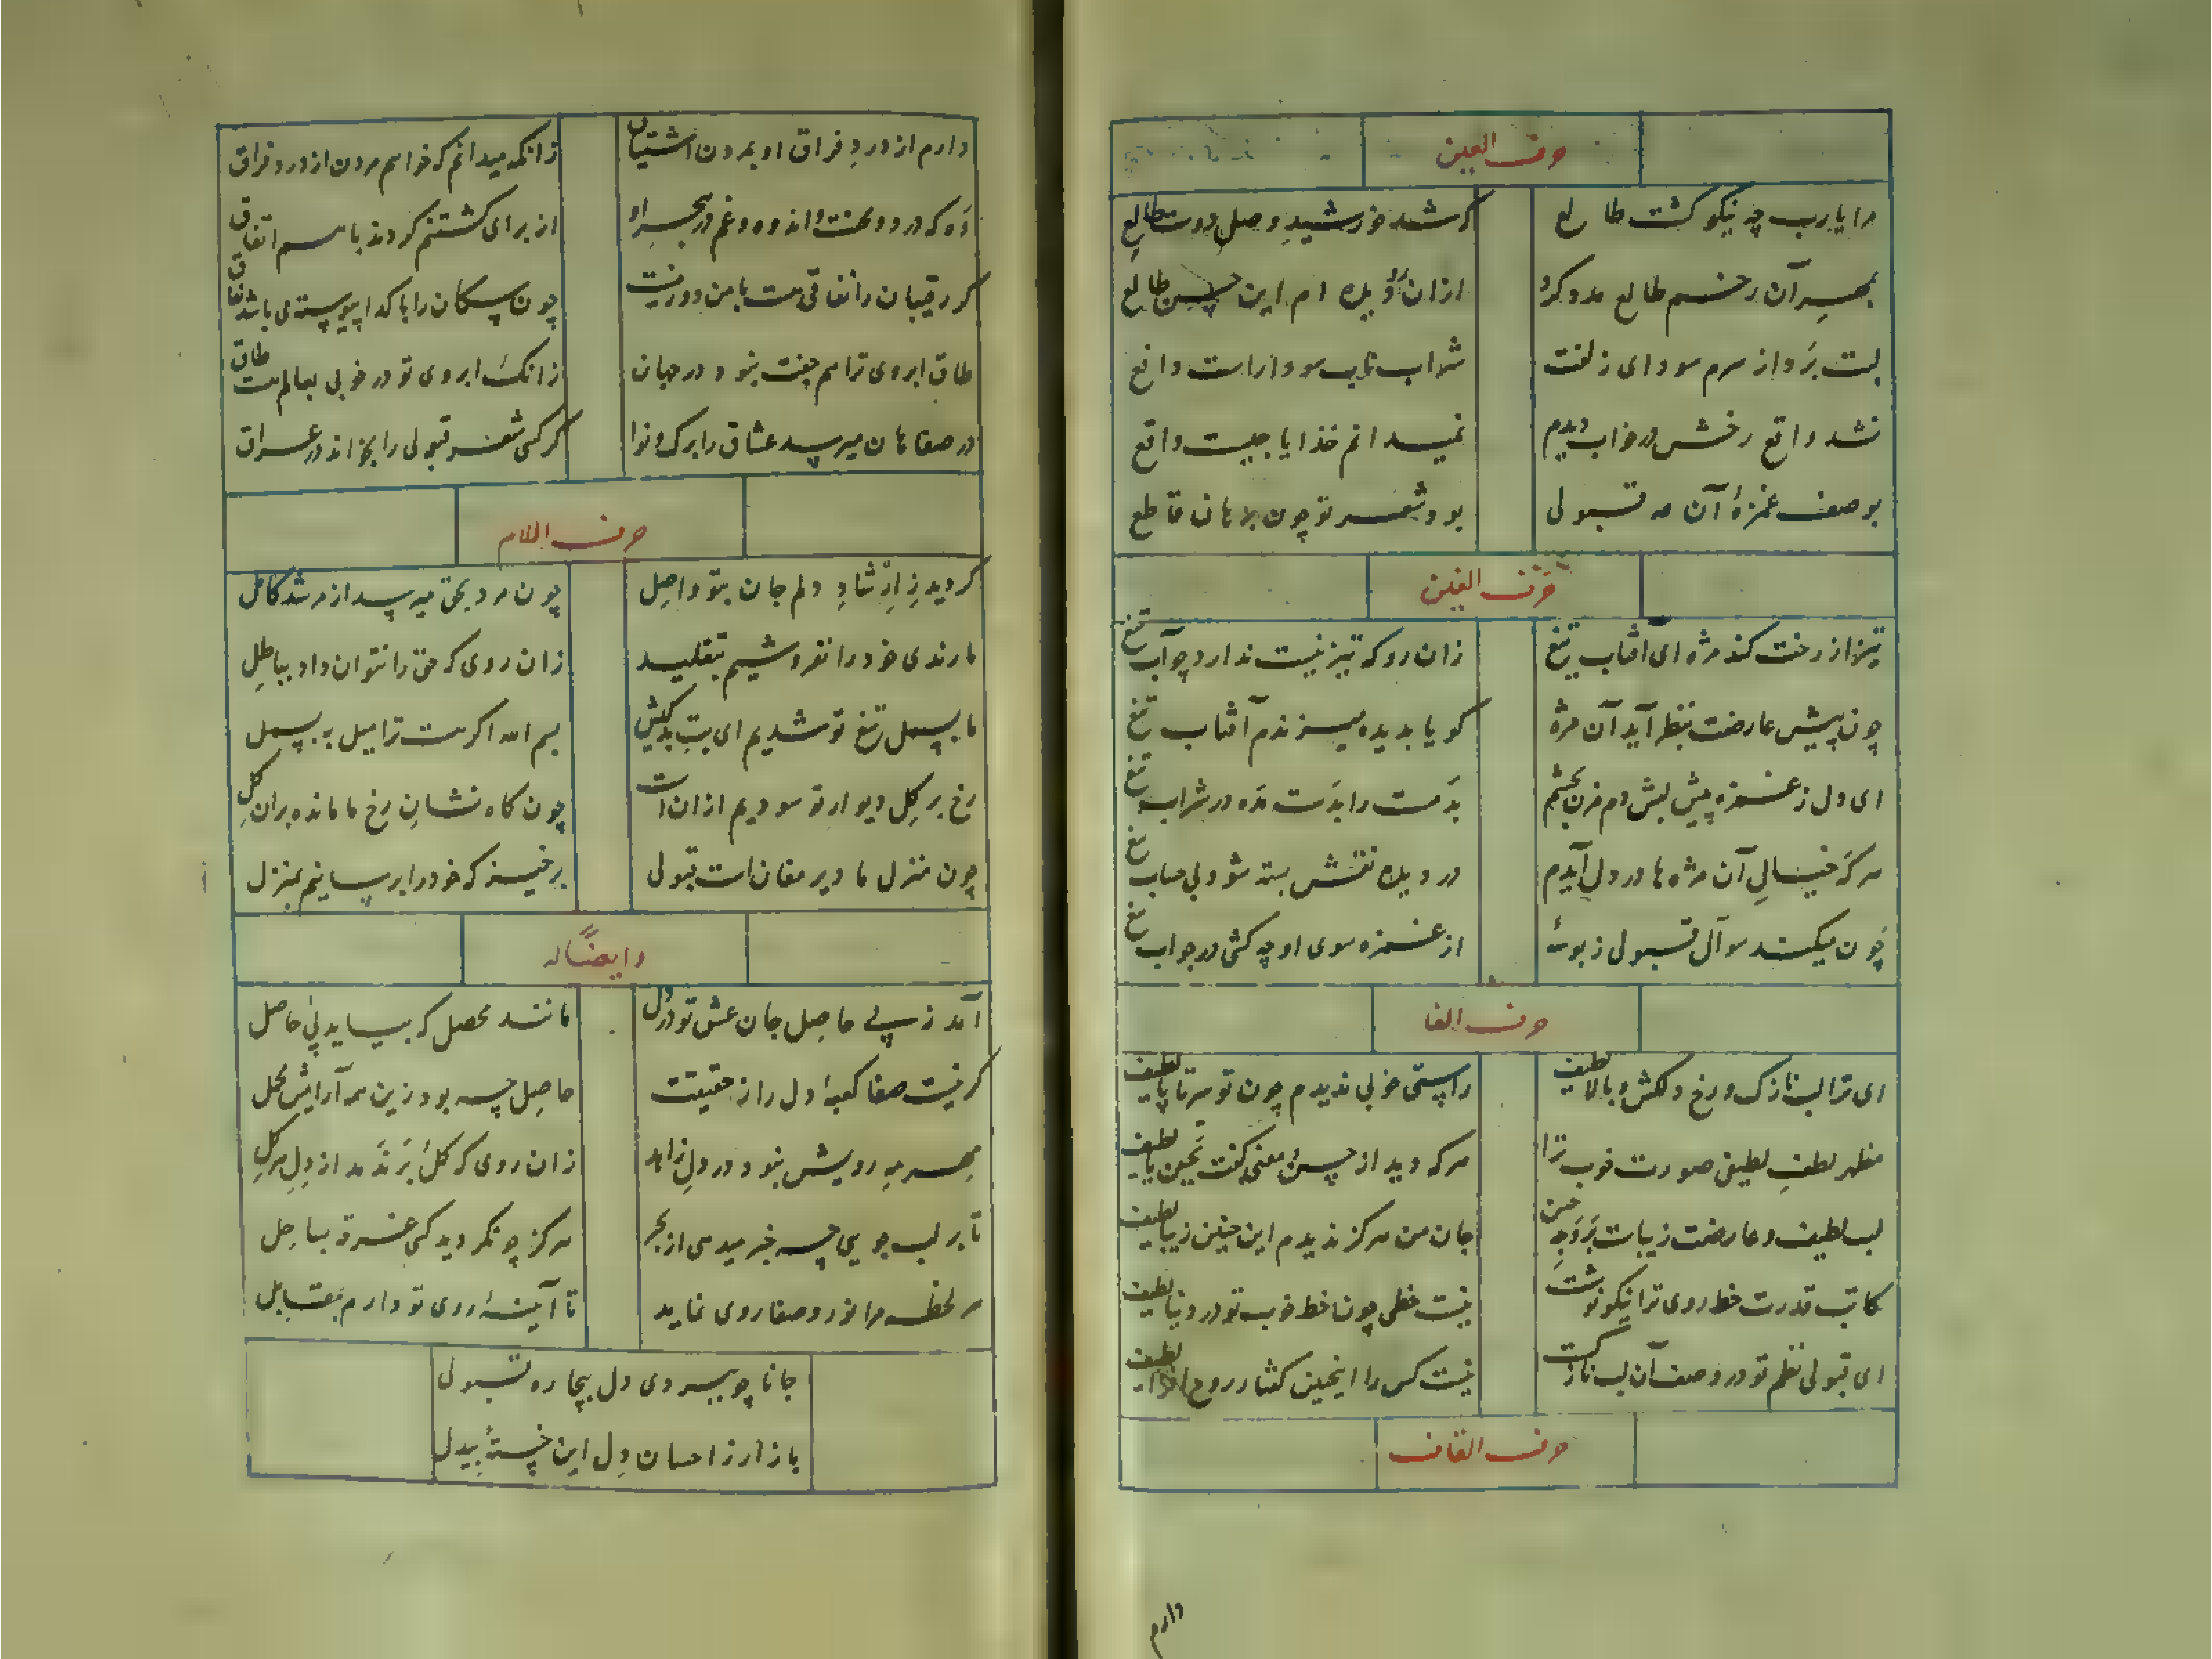 حرف العین
مرا یا رب چه نیکو گشت طالع
که شد خورشید وصل دوست طالع
بهر آن رخسم طالع مدد کرد
ازان رو دیده ام این چنین طالع
لبت برد از سرم سودای زلفت
شراب ناب سودا راست دافع
نشد واقع رخش در خواب دیدم
نمیدانم خدایا چیست واقع
بوصف غمزهٔ آن مه قبولی
بود شعر تو چون برهان قاطع
حرف الغین
تیز از رخت کند مژه ای آفتاب تیغ
زان رو که تیز نیست ندارد چو آب تیغ
چون پیش عارضت بنظر آید آن مژه
گویا بدیده میزندم آفتاب تیغ
ای دل ز غمزه پیش لبش دم مزن بچشم
بدمست را بدست مده در شراب تیغ
هر گه خیال آن مژه ها در دل آیدم
در دیده نقش بسته شود بی حساب تیغ
چون میکند سوآل قبولی ز بوسهٔ
از غمزه سوی او چه کشی در جواب تیغ
حرف الفا
ای ترا لب نازک و رخ دلکش و بالا لطیف
راستی خوبی ندیدم چون تو سر تا پا لطیف
مظهر لطف لطیفی صورت خوب ترا
هر که دید از حسن معنی گفت تحسین یا لطیف
لب لطیف و عارضت زیبا تر بوجه حسن
جان من هرگز ندیدم این چنین زیبا لطیف
کاتب قدرت خط روی ترا نیکو نوشت
نیست خطی چون خط خوب تو در دنیا لطیف
ای قبولی نظم تو در وصف آن لب نازکست
نیست کس را اینچنین گفتار روح افزا لطیف
حرف القاف
دارم
دارم از درد فراق او بمردن اشتیاق
زانکه میدانم که خواهم مردن از درد فراق
آه که درد و محنت و اندوه و غم در هجر او
از برای کشتنم کردند با هم اتفاق
گر رقیبان را نفاقی هست با من دور نیست
چون سگان را با گدا پیوسته می باشد نفاق
طاق ابروی ترا هم جفت نبود در جهان
زانک ابروی تو در خوبی بعالم هست طاق
در صفاهان میرسد عشاق را برگ و نوا
گر کسی شعر قبولی را بخواند در عراق
حرف اللام
گردید ز ارشاد دلم جان بتو واصل
چون مرد بحق میرسد از مرشد کامل
ما رندی خود را نفروشیم بتقلید
زان روی که حق را نتوان داد بباطل
ما بسمل تیغ تو شدیم ای بت بدکیش
بسم الله اگر هست ترا میل به بسمل
رخ بر گل دیوار تو سودیم ازان است
چون کاه نشان رخ ما مانده بران گل
چون منزل ما دیر مغان است قبولی
برخیز که خود را برسانیم بمنزل
وایضاً له
آمد ز پی حاصل جان عشق تو در دل
مانند محصل که بیاید پی حاصل
گر نیست صفا کعبهٔ دل را ز حقیقت
حاصل چه بود زین همه آرایش محمل
مهر مه رویش نبود در دل زاهد
زان روی که گل بر ندمد از دل هر گل
تا بر لب جویی چه خبر میدهی از بحر
هرگز چو نگردید کسی غرقه بساحل
هر لحظه مرا نور و صفا روی نماید
تا آینهٔ روی تو دارم بمقابل
جانا چو ببردی دل بیچاره قبولی
باز آر ز احسان دل این خستهٔ بیدل